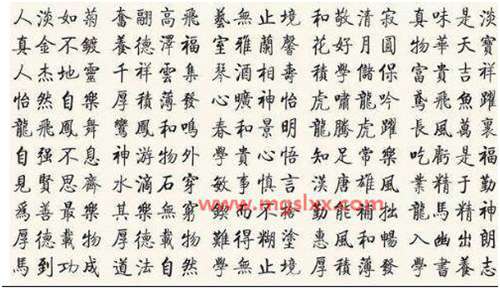 人淡如菊 奮翮高飛 藝無止境 和敬清寂 真味是淡
真金不鍍 養德澤福 室雅蘭馨 花好月圓 物華天寶
人杰地靈 千祥雲集 琴酒相壽 積學儲保 富貴吉祥
怡然自樂 厚積薄發 心曠神怡 虎嘯龍吟 鳶飛魚躍
龍飛鳳舞 鸞鳳和鳴 春和景明 龍騰虎躍 長風萬裏
自强不息 神游物外 學貴心悟 知足常樂 吃虧是福
見賢思齊 水滴石穿 敏事慎言 漢唐雄風 業精于勤
爲善最樂 其樂無窮 鍥而不舍 勤能補拙 龍馬精神
厚德載物 厚德載物 難得糊塗 惠風和暢 入幽出朗
馬到功成 道法自然 學無止境 厚積薄發 學書養志
www.mgslxx.com